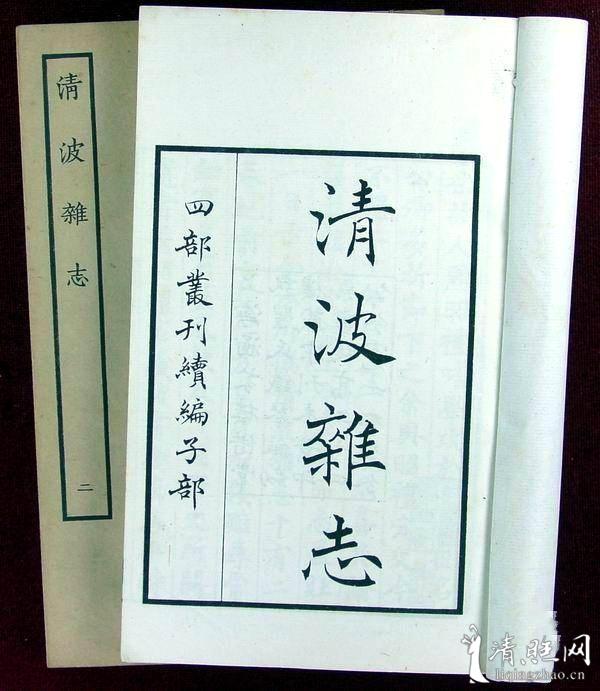 清波雜志
四部叢刊續編子部
清波雜志
二
清旺网
liqingzhao.cn